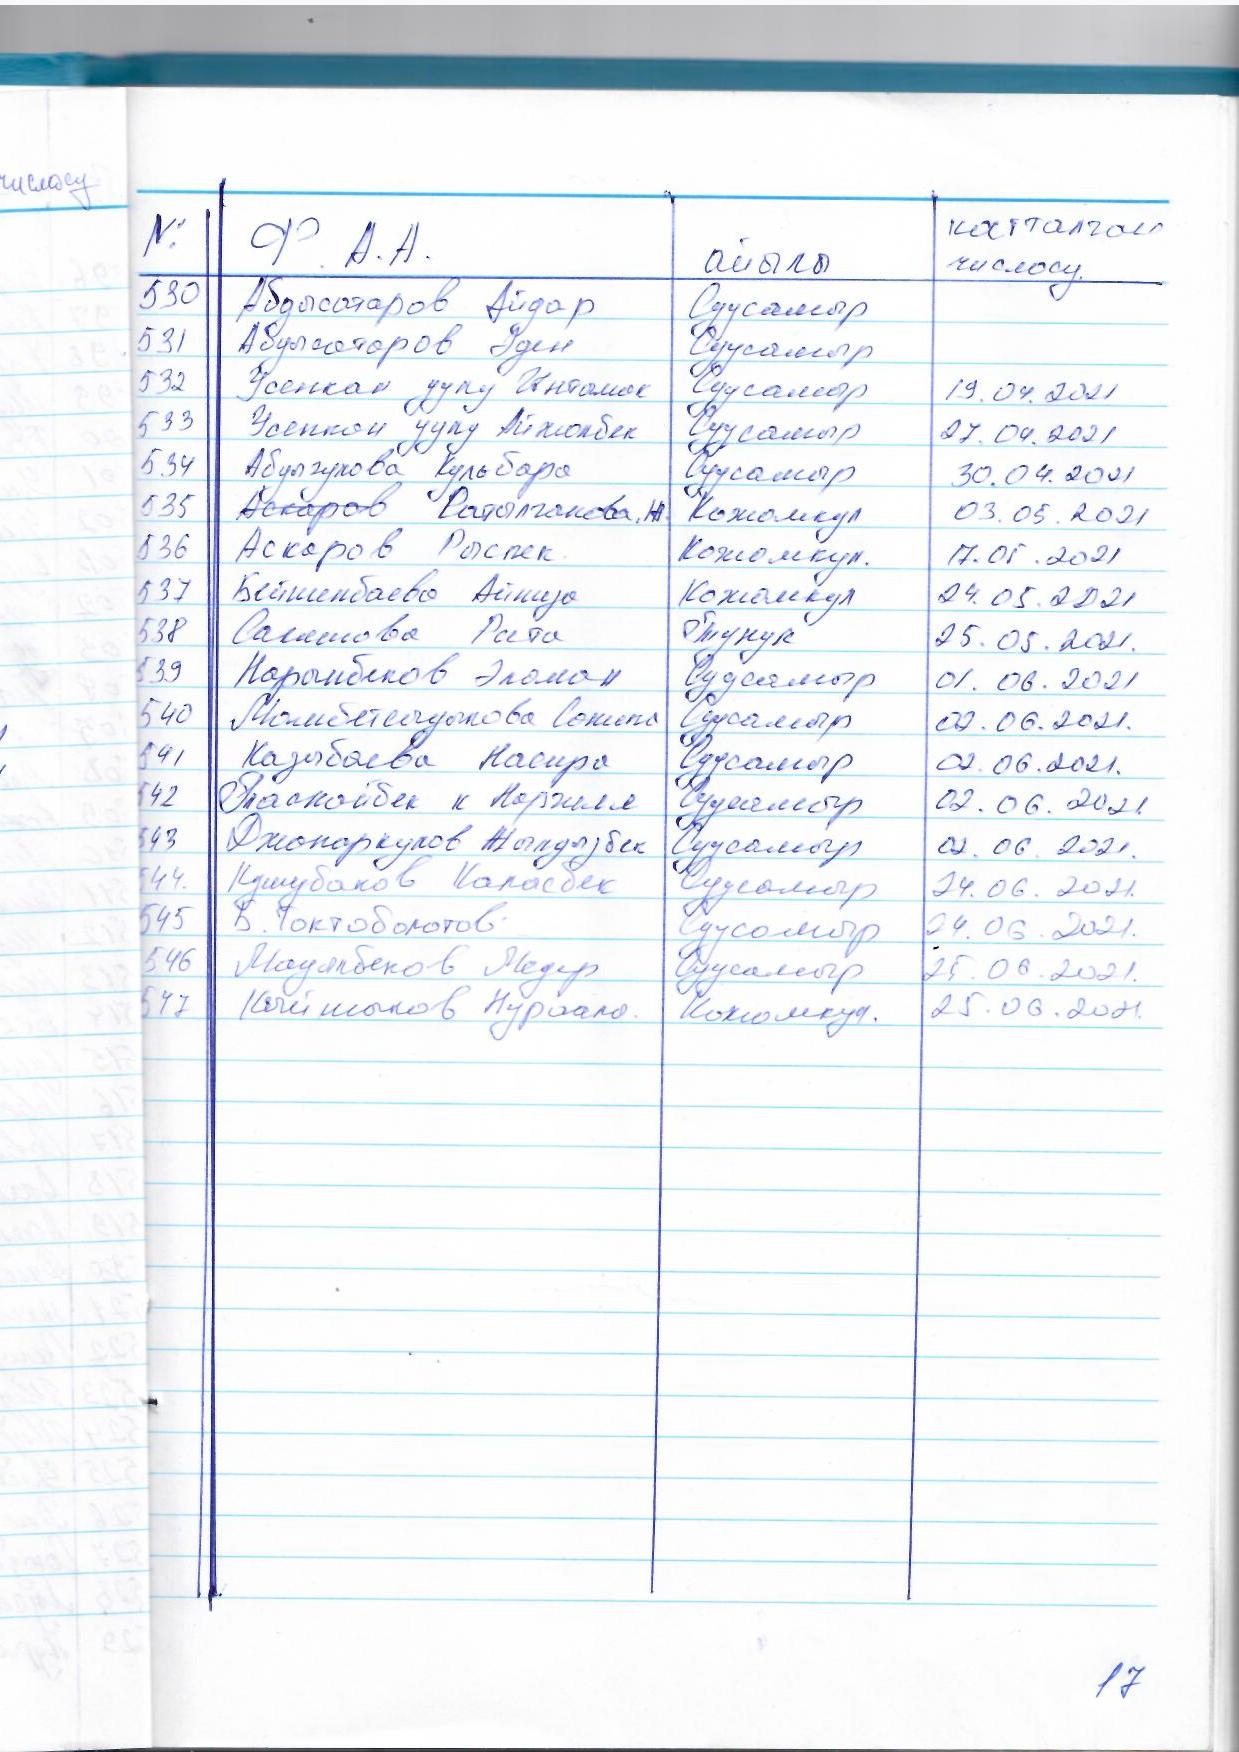 числосу
№: Ф. А.А. айылы катталган числосу.
530 Абдысатаров Айдар Суусамыр
531 Абдысатаров Уден Суусамыр
532 Усенкан уулу Ынтымак Суусамыр 19.04.2021
533 Усенкан уулу Айжолбек Суусамыр 27.04.2021
534 Абдыгулова Кульбара Суусамыр 30.04.2021
535 Аскаров Сатылганова. Н Кожомкул 03.05.2021
536 Аскаров Рыспек. Кожомкул. 17.05.2021
537 Бейшенбаева Айниза Кожомкул 24.05.2021
538 Салимова Рата Тунук 25.05.2021.
539 Нарынбеков Эламан Суусамыр 01.06.2021
540 Мамбетсыдыкова Сонина Суусамыр 02.06.2021.
541 Казыбаева Насира Суусамыр 02.06.2021.
542 Таснайбек к Наргиля Суусамыр 02.06.2021
543 Джапаркулов Жылдызбек Суусамыр 02.06.2021.
544. Калысбек Суусамыр 24.06.2021.
545 Б. Токтоболотов. Суусамыр 24.06.2021.
546 Мадылбеков Медер Суусамыр 25.06.2021.
547 Нураалы. Кожомкул. 25.06.2021.
17